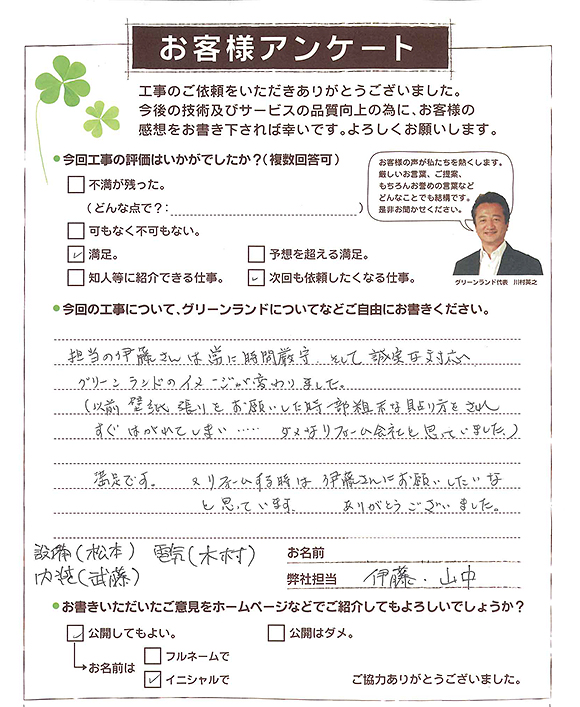 お客様アンケート
工事のご依頼をいただきありがとうございました。
今後の技術及びサービスの品質向上の為に、お客様の
感想をお書き下されば幸いです。よろしくお願いします。
●今回工事の評価はいかがでしたか?(複数回答可)
不満が残った。
(どんな点で?: )
可もなく不可もない。
満足。
予想を超える満足。
知人等に紹介できる仕事。
次回も依頼したくなる仕事。
お客様の声が私たちを熱くします。
厳しいお言葉、ご提案、
もちろんお誉めの言葉など
どんなことでも結構です。
是非お聞かせください。
グリーンランド代表 川村英之
●今回の工事について、グリーンランドについてなどご自由にお書きください。
担当の伊藤さんは常に時間厳守、そして誠実な対応へ
グリーンランドのイメージが変わりました。
(以前壁紙張りをお願いした時一部粗末な貼り方をされ
すぐはがれてしまい…… ダメなリフォーム会社と思っていました。)
満足です。 又リフォームする時は伊藤さんにお願いしたいな
と思っています。 ありがとうございました。
設備(松本) 電気(木村)
内装(武藤)
お名前
弊社担当 伊藤・山中
●お書きいただいたご意見をホームページなどでご紹介してもよろしいでしょうか?
公開してもよい。
公開はダメ。
お名前は
フルネームで
イニシャルで
ご協力ありがとうございました。